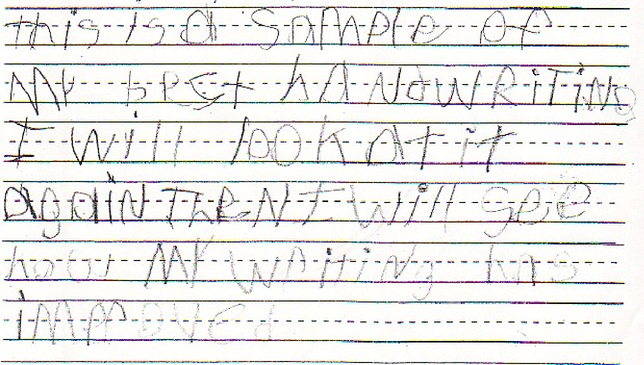 this is a sample of
My best haNdwRiTiNg
I will look at it
agaiN TheN I will see
how My wRitiNg has
iMpRoved